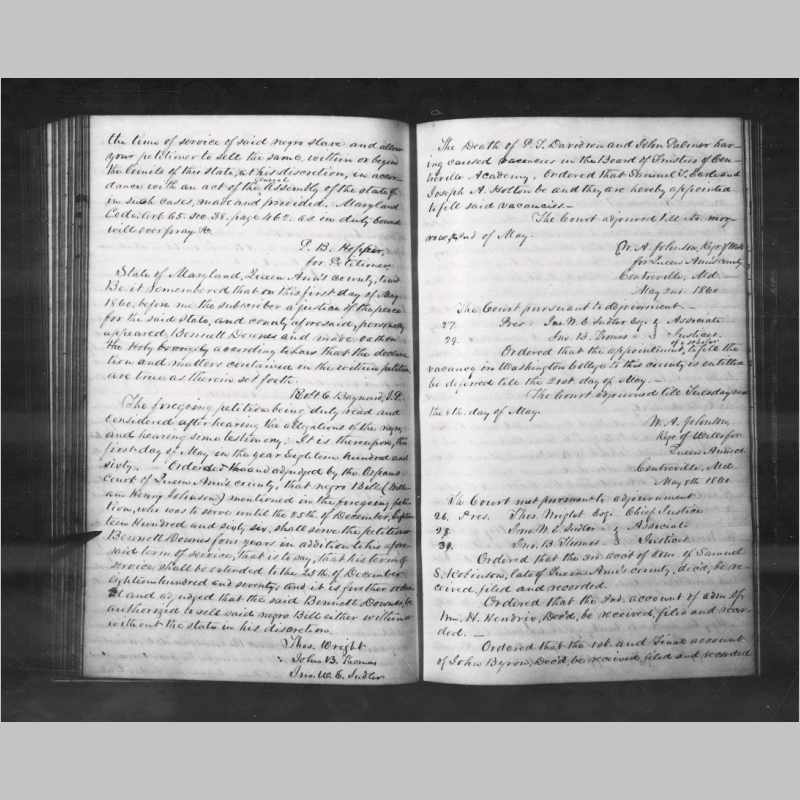 the time of service of said negro slave and allow
your petitioner to sell the same within or beyond
the limits of this state, at his discretion, in accor-
dance with an act of the General Assembly of the state
in such cases, made and provided. Maryland
Code, art 65. sec 38. page 462. as in duty bound
will ever pray &c
P. B. Hopper,
for Petitioner
State of Maryland, Queen Ann's county, to wit
Be it remembered that on this first day of May
1860, before me the subscriber a justice of the peace
for the said state, and county aforesaid, personally
appeared Bennett Downes and made oath on
the Holy according to law that the declara
tion and matters contained in the within petition
are true as therein set forth.
Robt C. Baynard, J.P.
The foregoing petition being duly read and
considered after hearing the allegations of the negro,
and hearing some testimony; It is thereupon, this
first day of May in the year Eighteen hundred and
sixty. Ordered and adjudged by the Orphans
court of Queen Ann's county, that negro Bill (Willi
am Henry Johnson) mentioned in the foregoing peti
tion, who was to serve until the 25th of December, Eigh
teen Hundred and sixty six, shall serve the petitioner
Bennett Downes four years in addition to his afore
said term of service, that is to say, that his term of
service shall be extended to the 25th of December
eighteen hundred and seventy and it is further order
ed and adjudged that the said Bennett Downes, be
authorized to sell said negro Bill either within or
without the state in his discretion.
Thos. Wright
John B. Thomas
Jno. W. E. Sudler
The Death of P. S. Davidson and John Palmer hav-
ing caused vacancies in the Board of Trustees of Cen-
treville Academy, Ordered that Samuel T. Earle and
Joseph A. Holton be and they are hereby appointed
to fill said vacancies —
The Court adjourned till to. mor
row, 2nd of May.
W. A. Johnson, Regr of Wills
for Queen Ann's county
Centreville, Md.
May 2nd 1860
The Court pursuant to adjournment —
27. Pres Jno. W. E. Sudler esq. } Associate
24. Jno. B. Thomas " } Justices.
Ordered that the appointment, of a scholar to fill the
vacancy in Washington College to this county is entitled
be deferred till the 21st day of May. —
The Court adjourned till Tuesday
the 8th day of May.
W. A. Johnson,
Regr of Wills for
Queen Ann's co.
Centreville, Md.
May 8th 1860
The Court met pursuant to adjournment
26. Pres. Thos. Wright Esq. Chief Justice
28. Jno. W. E. Sudler } Associate
30. Jno. B. Thomas } Justices
Ordered that the 3rd acct of Adm. of Samuel
S. Robinson, late of Queen Ann's county, dec'd, be re
ceived, filed and recorded.
Ordered that the 2nd. account of adm of
Wm. H. Hendrix, Dec'd, be received, filed and recor-
ded. —
Ordered that the 1st. and Final account
of John Byron, Dec'd, be received, filed and recorded